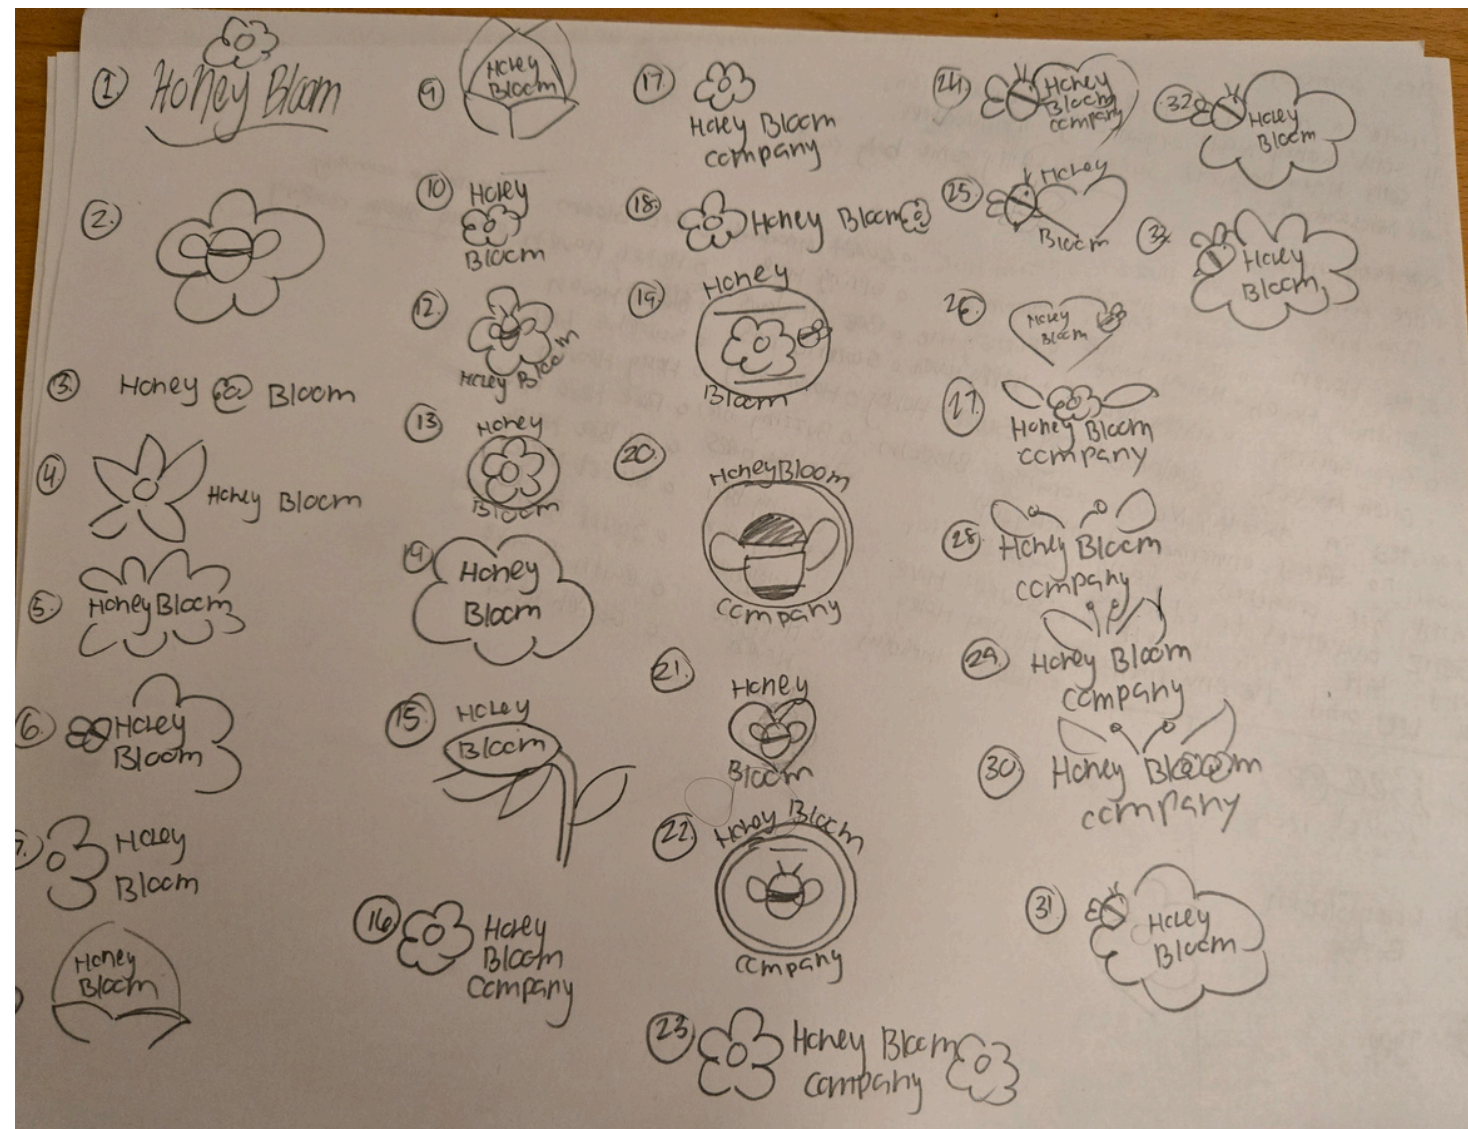 1.
Honey Bloom
2.
3.
Honey Bloom
4.
Honey Bloom
5.
Honey Bloom
6.
Honey
Bloom
7.
Honey
Bloom
Honey
Bloom
9
Honey
Bloom
10
Honey
Bloom
12.
Honey Bloom
13
Honey
Bloom
Honey
Bloom
15.
Honey
Bloom
16
Honey
Bloom
Company
17.
Honey Bloom
company
18.
Honey Bloom
19.
Honey
Bloom
20.
HoneyBloom
company
21.
Honey
Bloom
22.
Honey Bloom
company
23
Honey Bloom
company
24.
Honey
Bloom
company
25.
Honey
Bloom
26.
Honey
Bloom
27.
Honey Bloom
company
28.
Honey Bloom
company
29.
Honey Bloom
company
30
Honey Blooom
company
31
Honey
Bloom
32
Honey
Bloom
Honey
Bloom